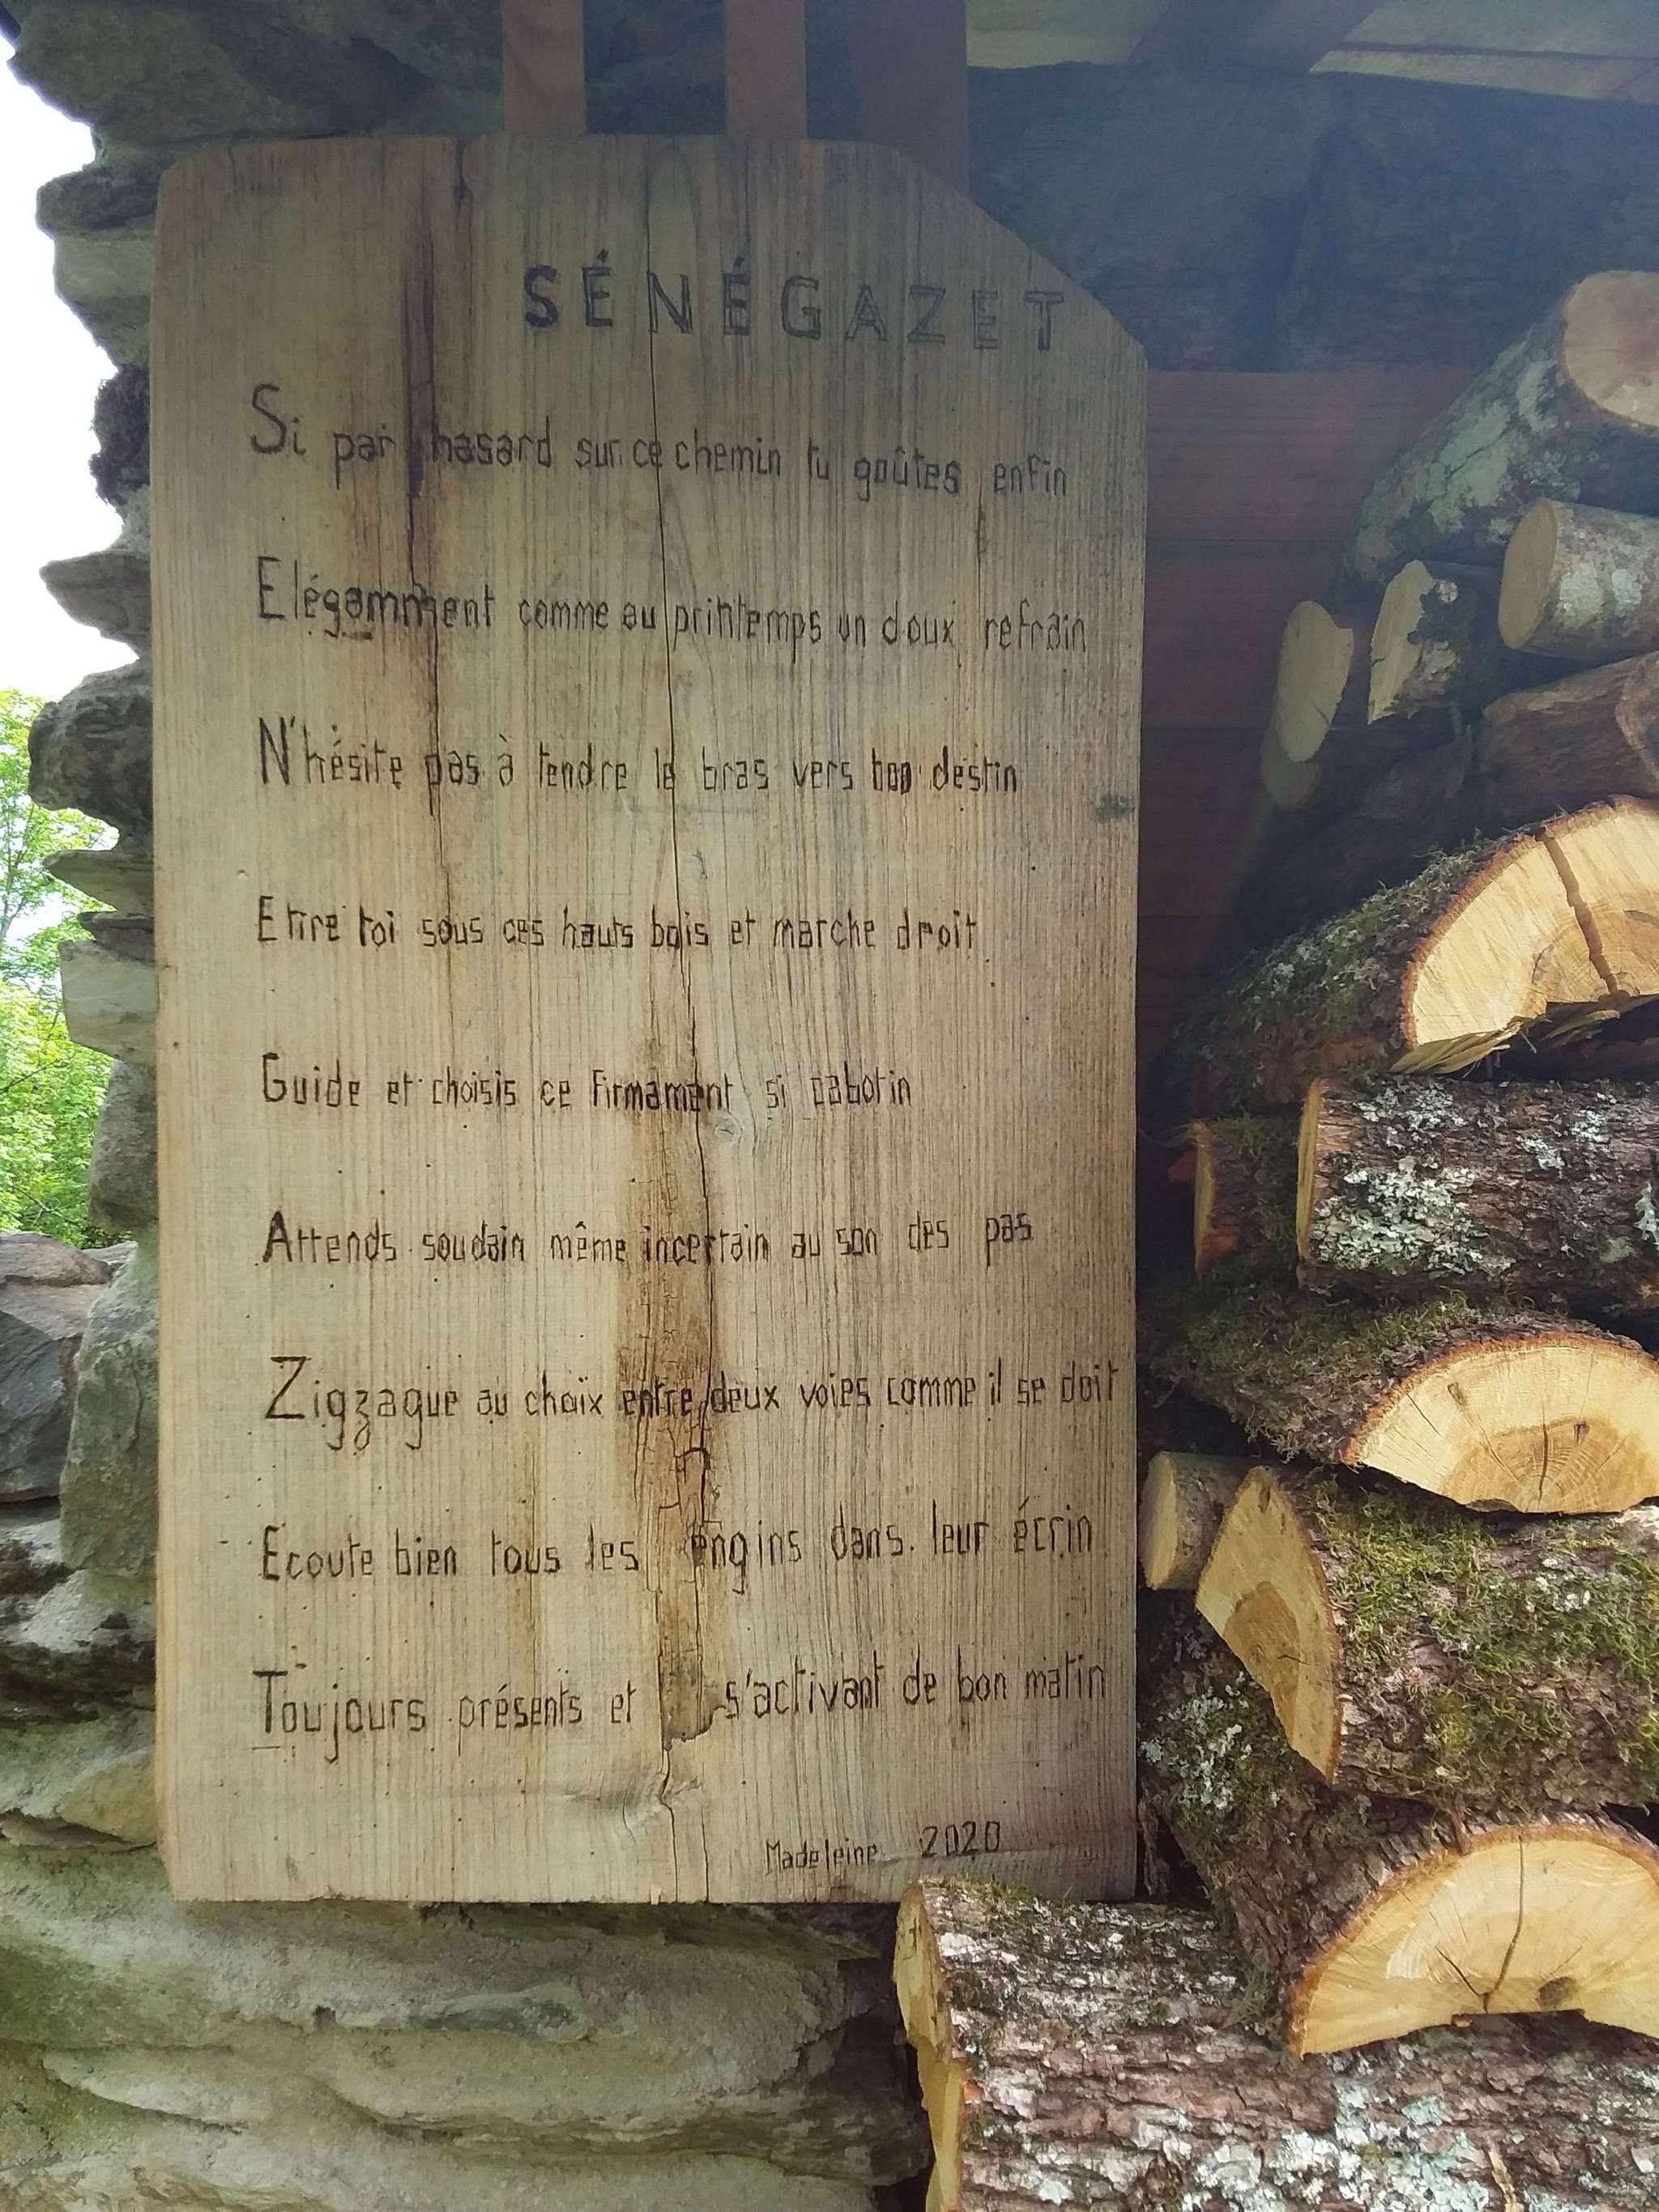 SÉNÉGAZET
Si par hasard sur ce chemin tu goûtes enfin
Elégamment comme au printemps un doux refrain
N'hésite pas à tendre le bras vers ton destin
Etire toi sous ces hauts bois et marche droit
Guide et choisis ce firmament si cabotin
Attends soudain même incertain au son des pas
Zigzague au choix entre deux voies comme il se doit
Ecoute bien tous les engins dans leur écrin
Toujours présents et s'activant de bon matin
Madeleine 2020